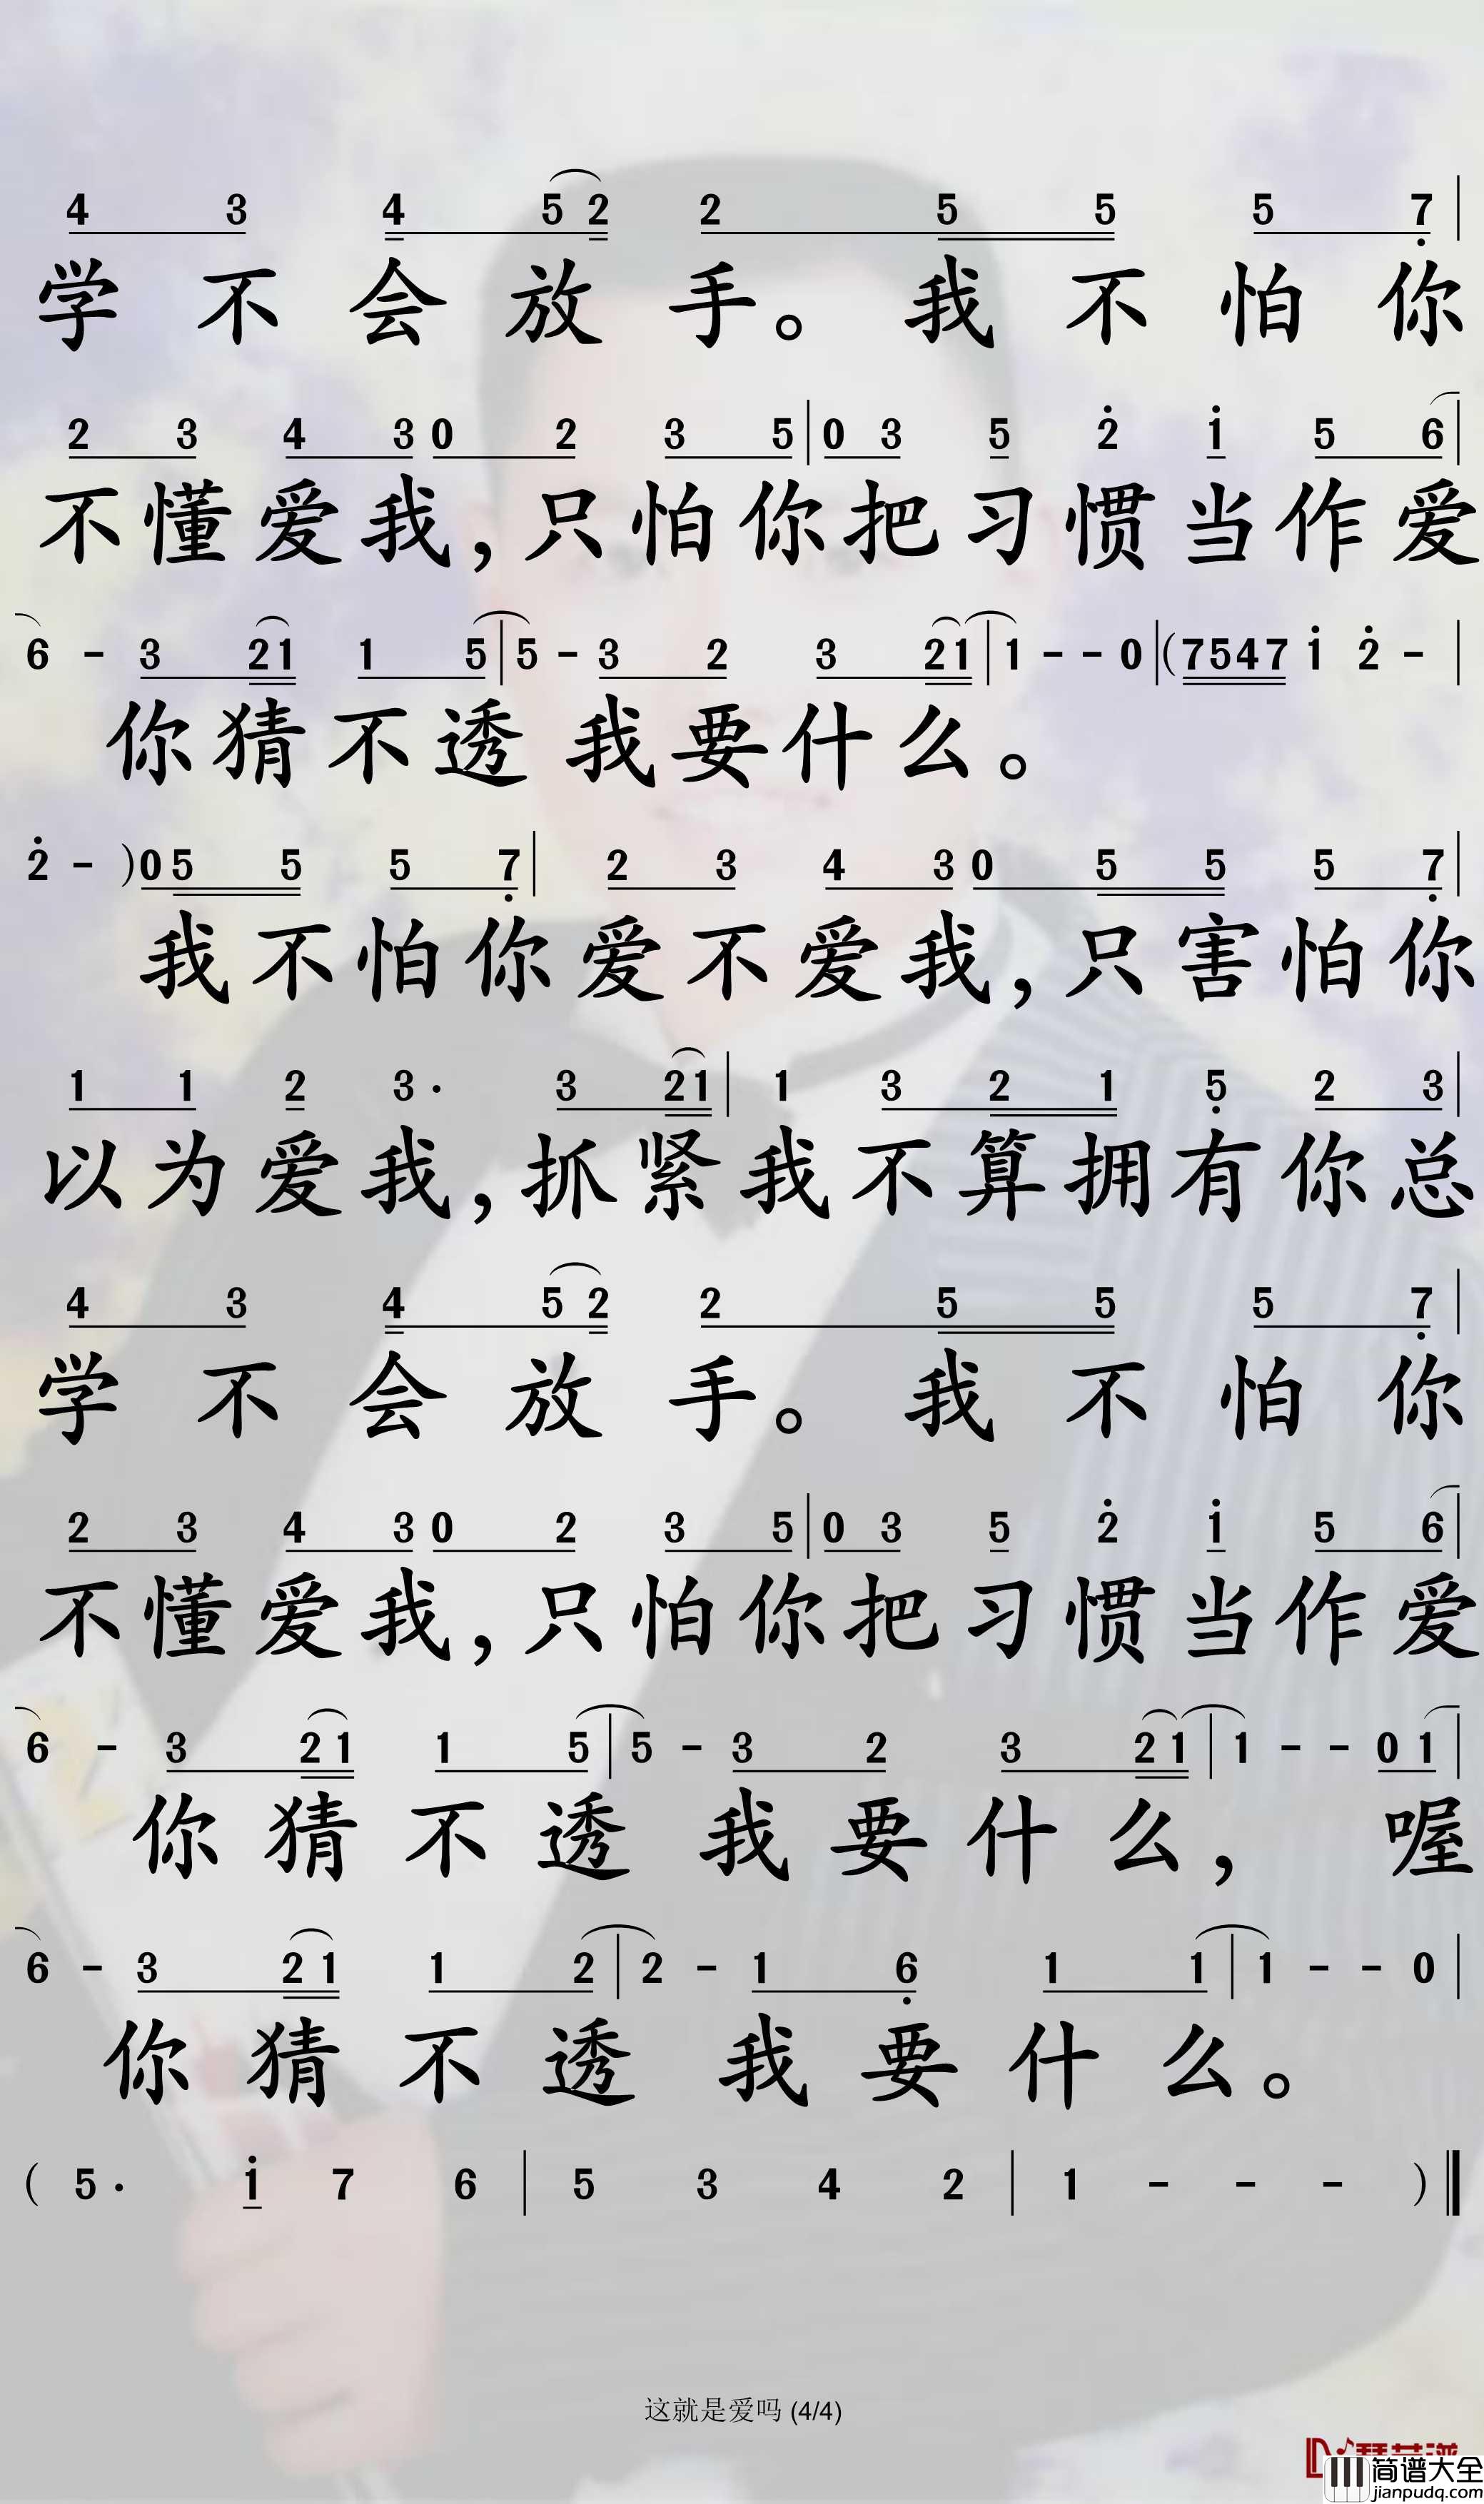 4 3 4 5 2 2 5 5 5 7 |
学不会放手。我不怕你
2 3 4 3 0 2 3 5 | 0 3 5 2 1 5 6 |
不懂爱我,只怕你把习惯当作爱
6 - 3 2 1 1 5 | 5 - 3 2 3 2 1 | 1 - - 0 | ( 7 5 4 7 1 2 - |
你猜不透 我要什么。
2 - ) 0 5 5 5 7 | 2 3 4 3 0 5 5 5 7 |
我不怕你爱不爱我,只害怕你
1 1 2 3 · 3 2 1 | 1 3 2 1 5 2 3 |
以为爱我,抓紧我不算拥有你总
4 3 4 5 2 2 5 5 5 7 |
学不会放手。我不怕你
2 3 4 3 0 2 3 5 | 0 3 5 2 1 5 6 |
不懂爱我,只怕你把习惯当作爱
6 - 3 2 1 1 5 | 5 - 3 2 3 2 1 | 1 - - 0 1 |
你猜不透 我要什么, 喔
6 - 3 2 1 1 2 | 2 - 1 6 1 1 | 1 - - 0 |
你猜不透 我要什么。
( 5 · 1 7 6 | 5 3 4 2 | 1 - - - )
这就是爱吗 (4/4)
简谱大全
jianpudq.com